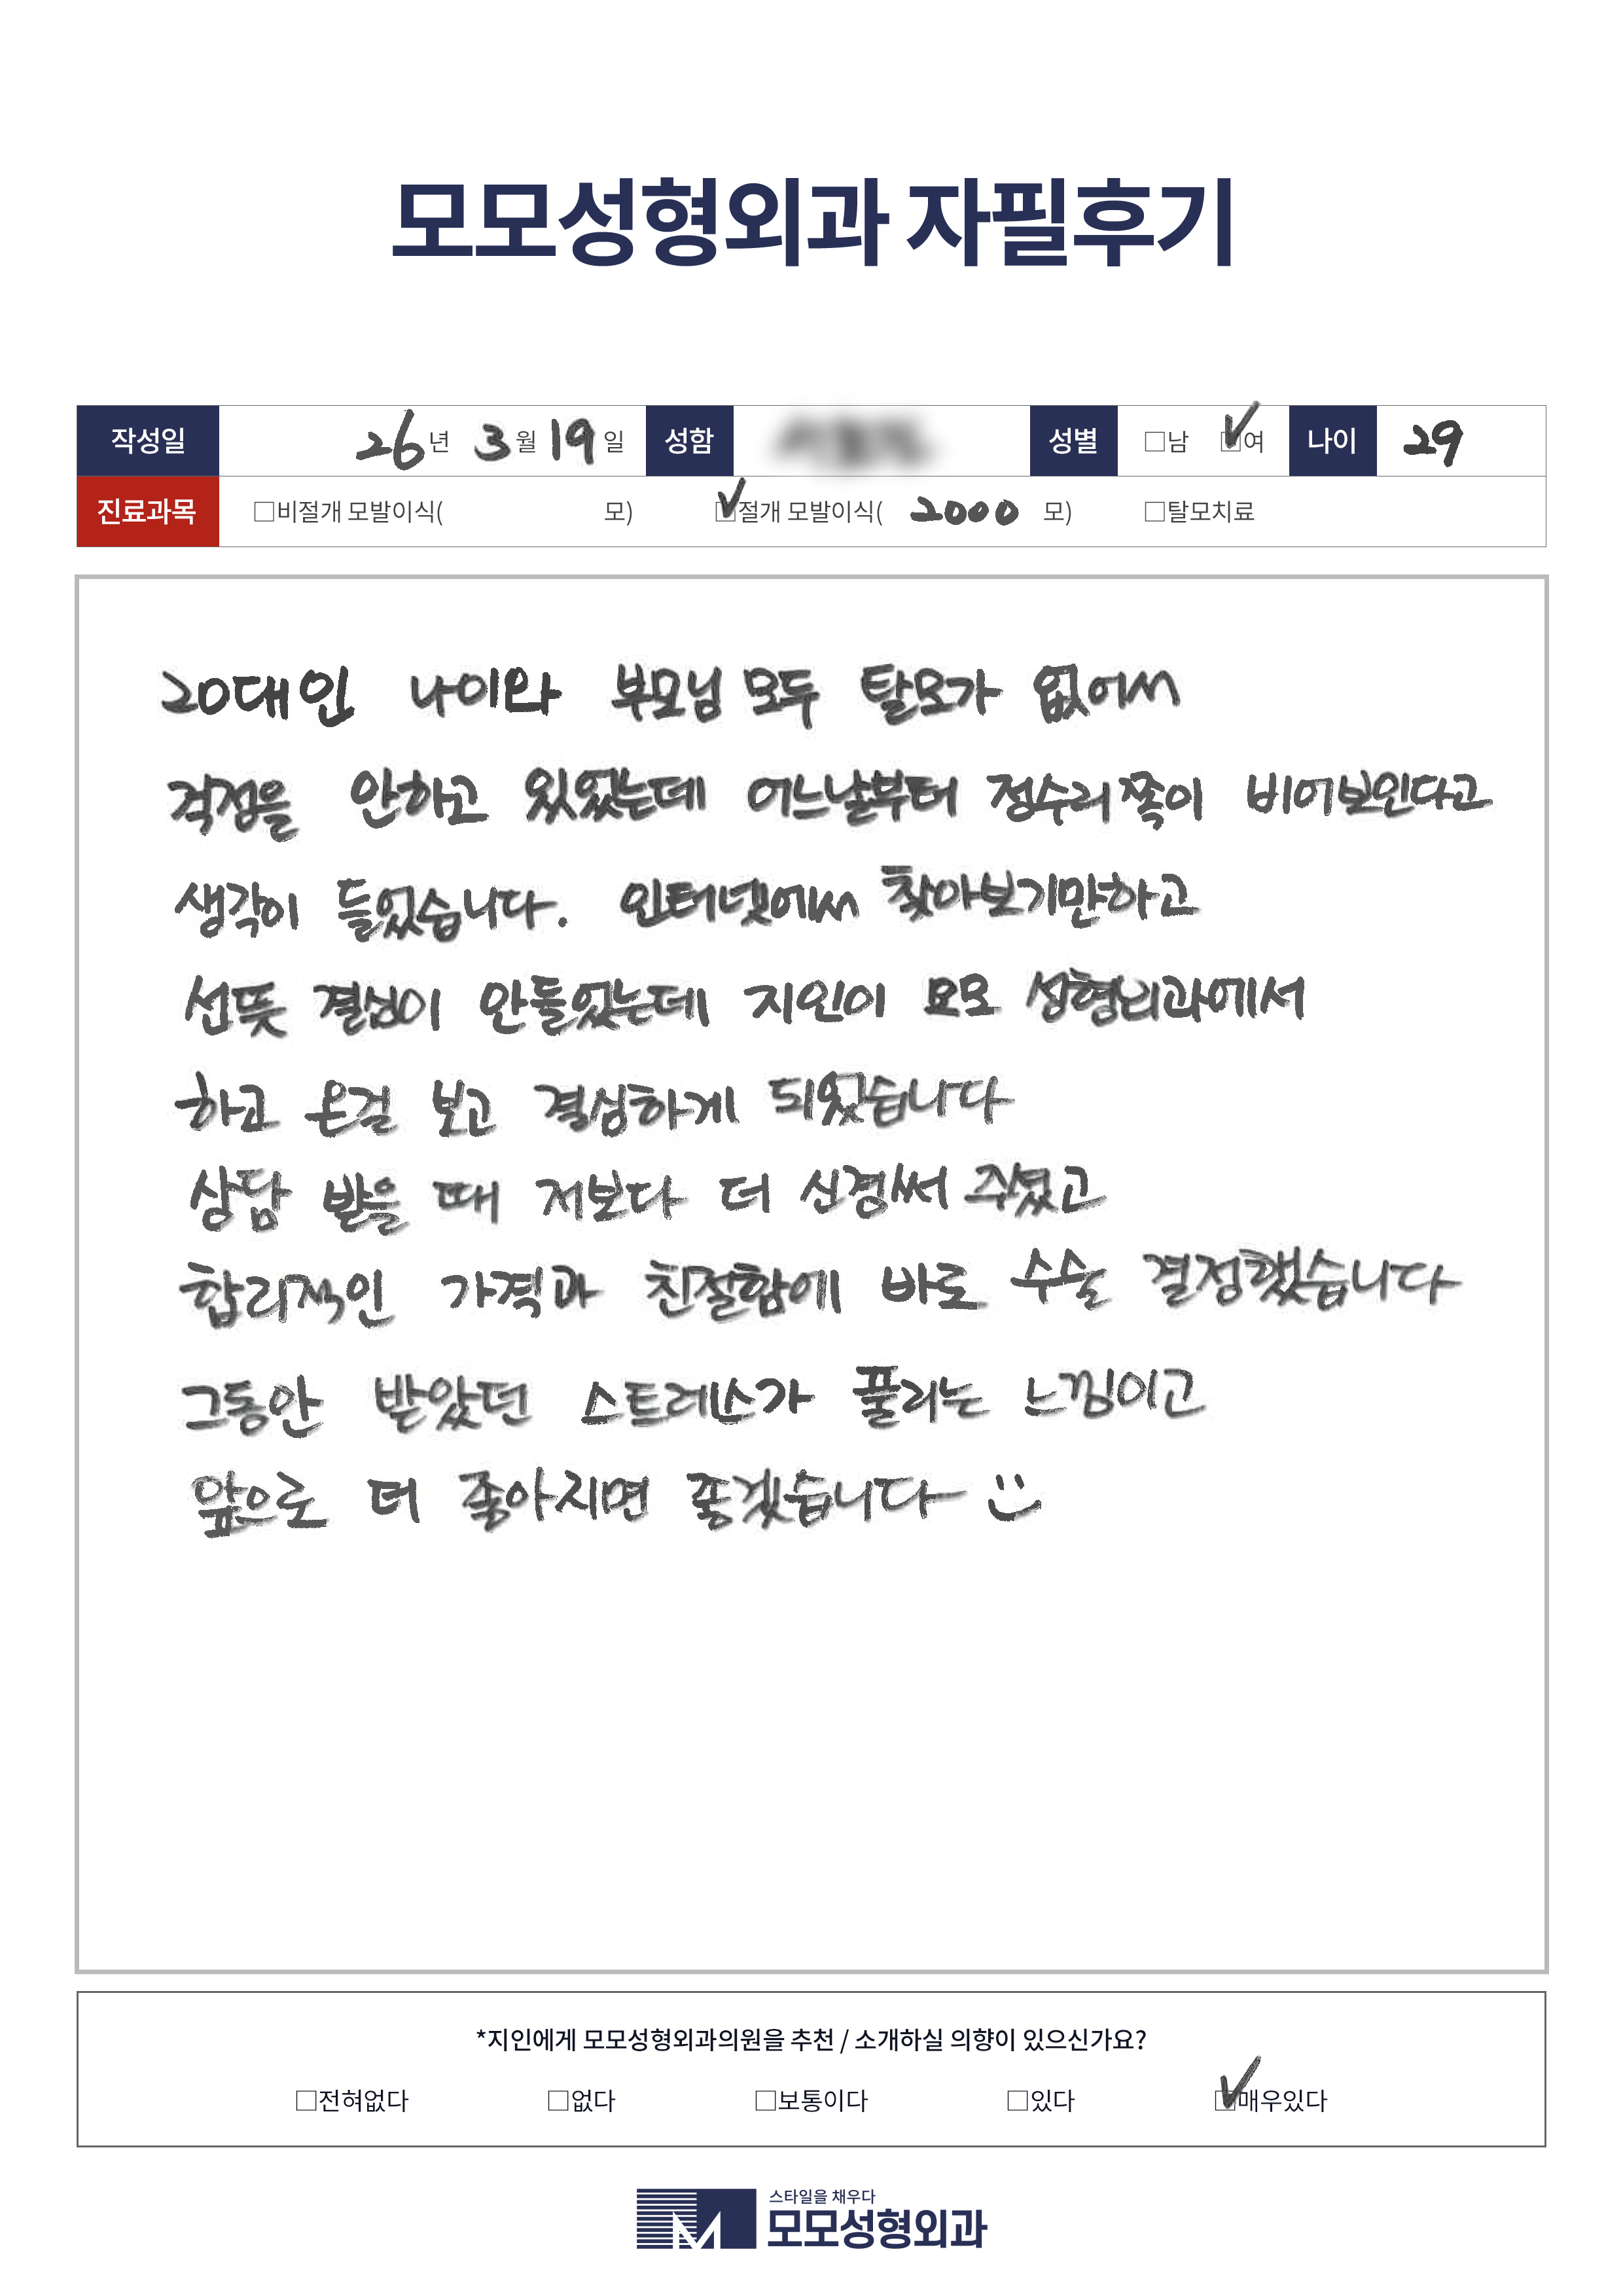 모모성형외과 자필후기
작성일 26년 3월 19일 성함 성별 □남 ☑여 나이 29
진료과목 □비절개 모발이식( 모) ☑절개 모발이식( 2000 모) □탈모치료
20대인 나이와 부모님 모두 탈모가 없어서
걱정을 안하고 있었는데 어느날부터 정수리쪽이 비어보인다고
생각이 들었습니다. 인터넷에서 찾아보기만하고
선뜻 결심이 안들었는데 지인이 모모 성형외과에서
하고 온걸 보고 결심하게 되었습니다
상담 받을 때 저보다 더 신경써 주셨고
합리적인 가격과 친절함에 바로 수술 결정했습니다
그동안 받았던 스트레스가 풀리는 느낌이고
앞으로 더 좋아지면 좋겠습니다
*지인에게 모모성형외과의원을 추천 / 소개하실 의향이 있으신가요?
□전혀없다 □없다 □보통이다 □있다 ☑매우있다
스타일을 채우다
모모성형외과